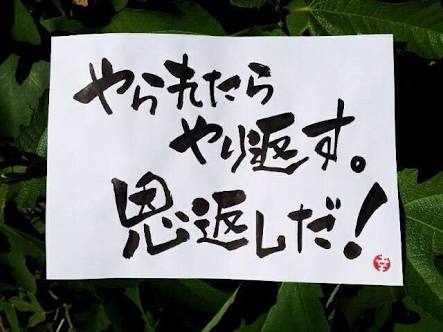 やられたら
やり返す。
恩返しだ!